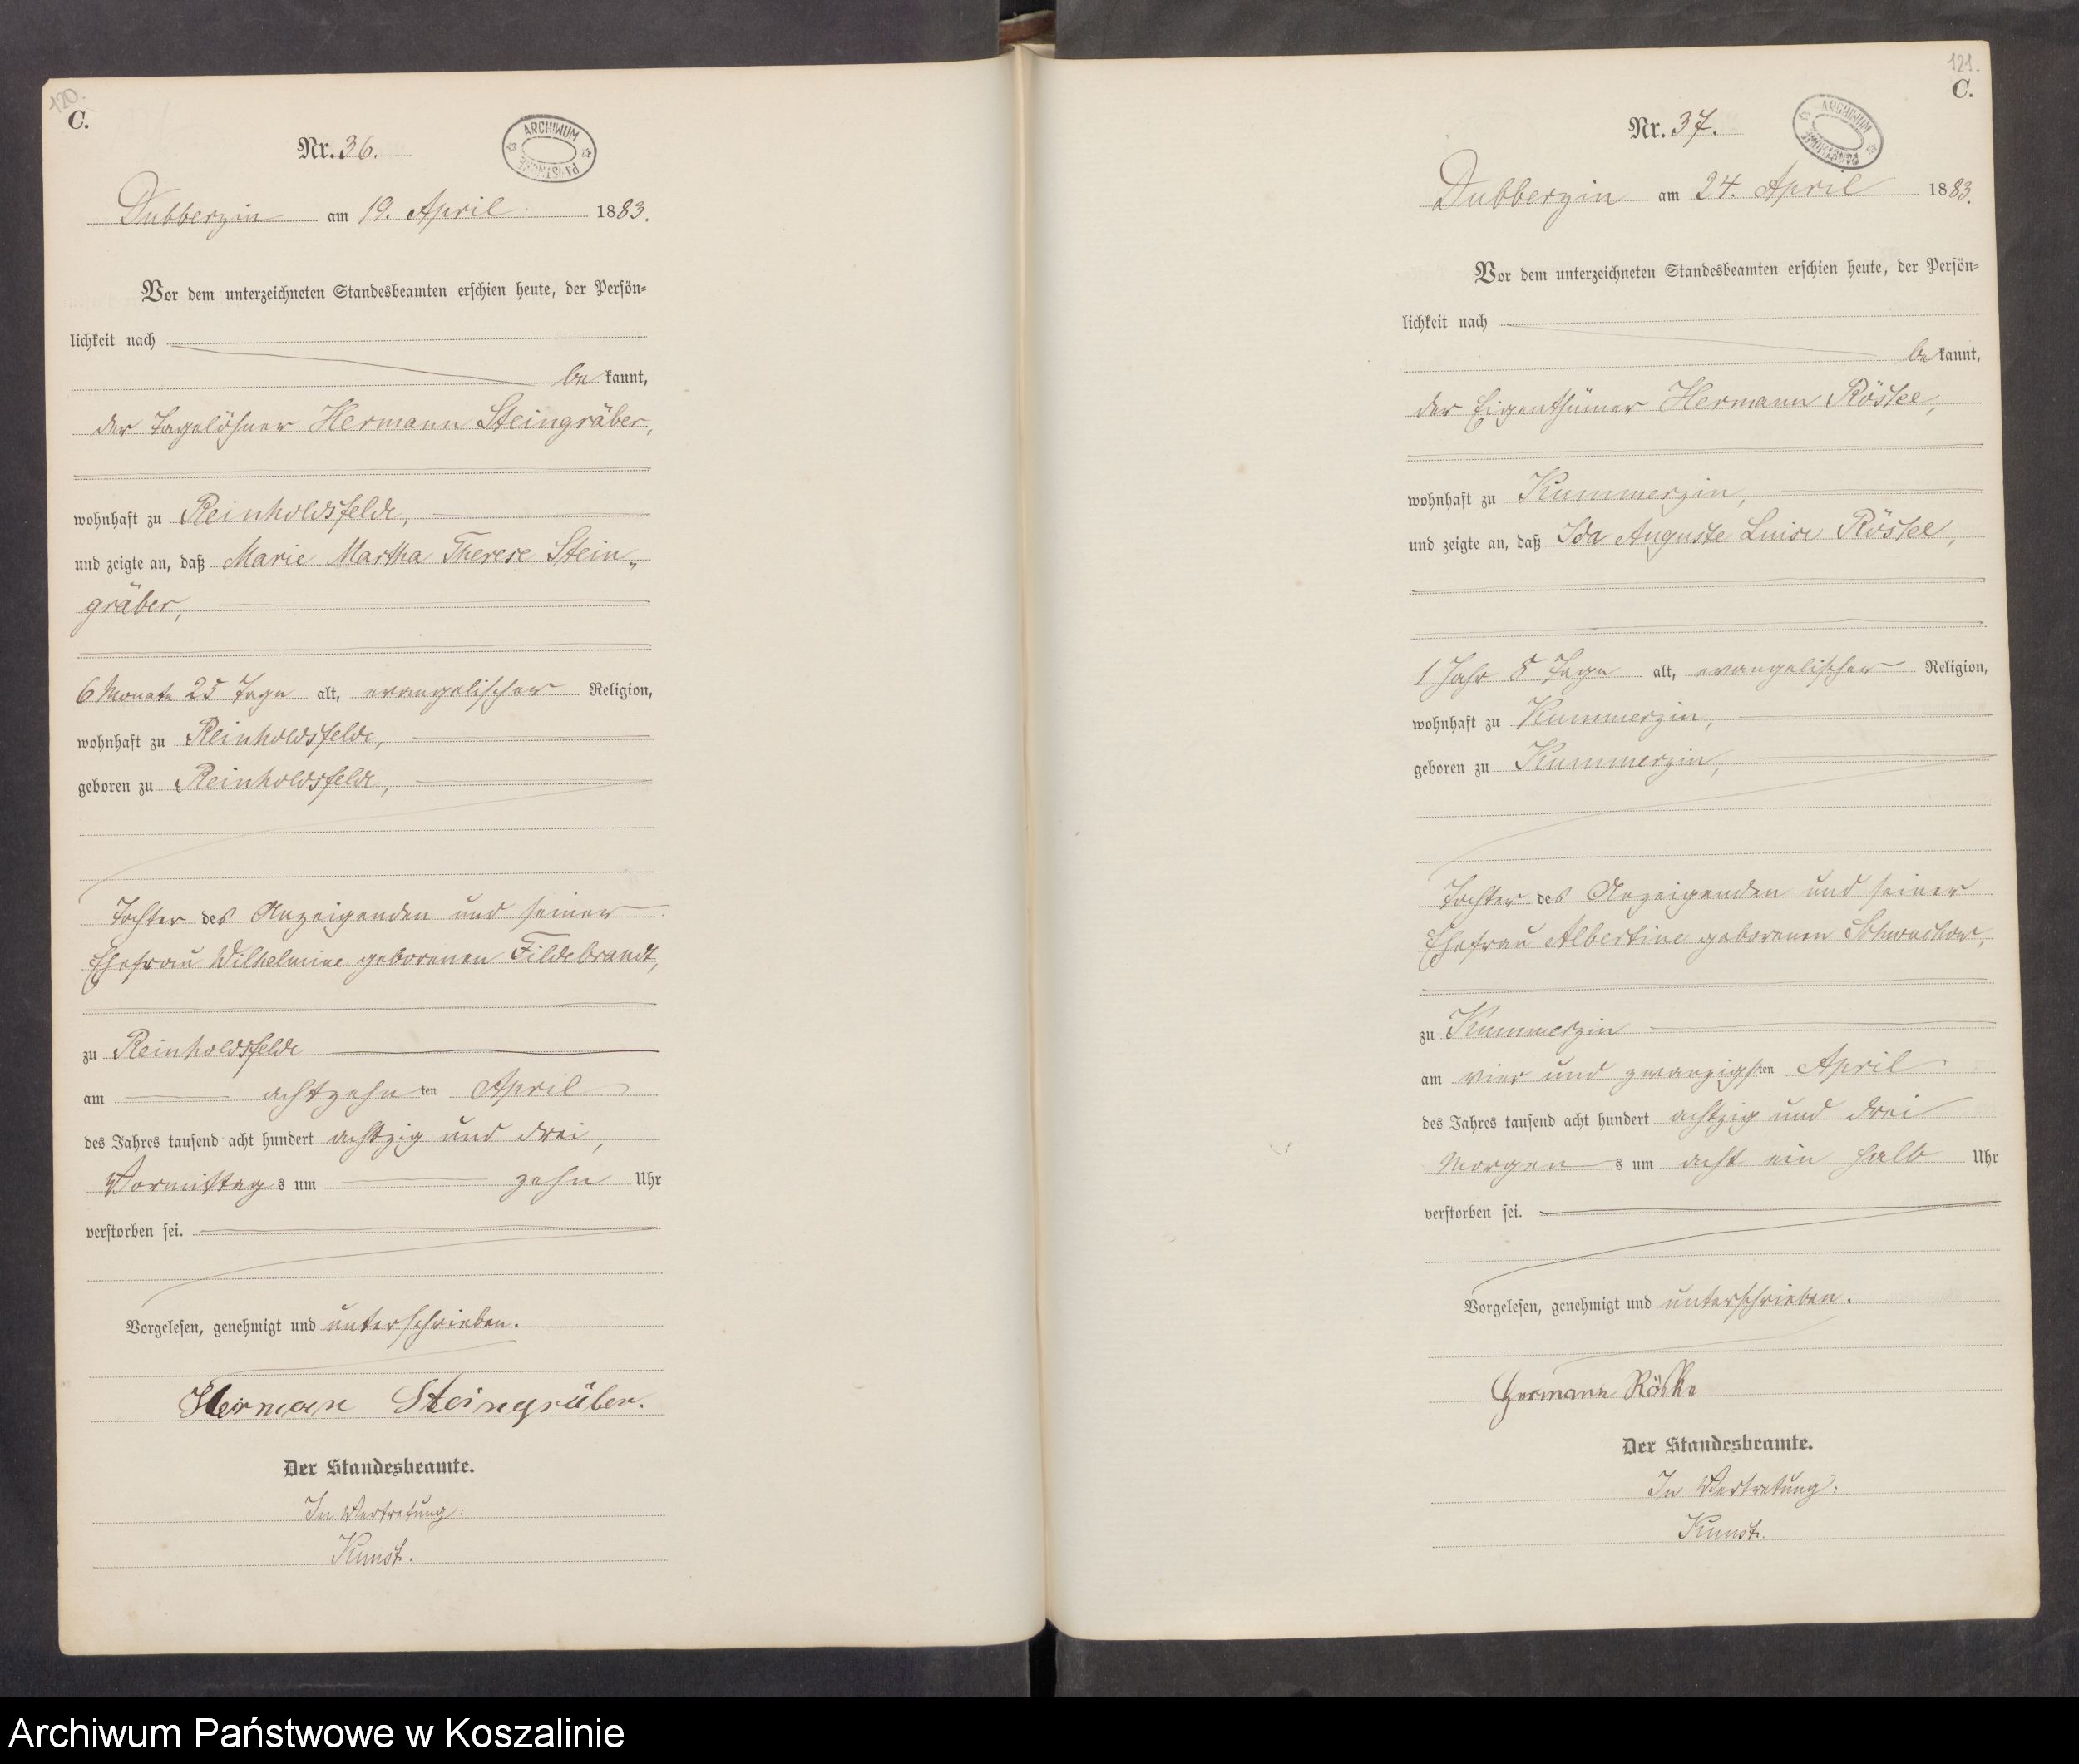 120.
C.
Nr. 36.
ARCHIWUM PAŃSTWOWE
Dubberzin am 19. April 1883.
Vor dem unterzeichneten Standesbeamten erschien heute, der Persön-
lichkeit nach
be kannt,
der Tagelöhner Hermann Steingräber,
wohnhaft zu Reinholdsfelde,
und zeigte an, daß Marie Martha Therese Stein-
gräber,
6 Monate 25 Tage alt, evangelischer Religion,
wohnhaft zu Reinholdsfelde,
geboren zu Reinholdsfelde,
Tochter des Anzeigenden und seiner
Ehefrau Wilhelmine geborenen Fildebrandt,
zu Reinholdsfelde
am achtzehn ten April
des Jahres tausend acht hundert achtzig und drei,
Vormittag s um zehn Uhr
verstorben sei.
Vorgelesen, genehmigt und unterschrieben.
Herman Steingräber.
Der Standesbeamte.
In Vertretung:
Kunst.
121.
C.
Nr. 37.
ARCHIWUM PAŃSTWOWE
Dubberzin am 24. April 1883.
Vor dem unterzeichneten Standesbeamten erschien heute, der Persön-
lichkeit nach
be kannt,
der Eigenthümer Hermann Röske,
wohnhaft zu Kummerzin,
und zeigte an, daß Ida Auguste Luise Röske,
1 Jahr 8 Tage alt, evangelischer Religion,
wohnhaft zu Kummerzin,
geboren zu Kummerzin,
Tochter des Anzeigenden und seiner
Ehefrau Albertine geborenen
zu Kummerzin
am vier und zwanzigs ten April
des Jahres tausend acht hundert achtzig und drei
Morgen s um acht ein halb Uhr
verstorben sei.
Vorgelesen, genehmigt und unterschrieben.
Hermann Röske
Der Standesbeamte.
In Vertretung:
Kunst.
Archiwum Państwowe w Koszalinie